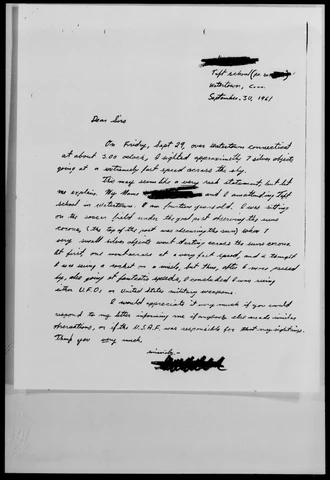 Taft School
Watertown, Conn.
September 30, 1961
Dear Sirs
On Friday, Sept 29, over Watertown connecticut
at about 3:00 oclock, I sighted approximately 7 silver objects
going at a extremely fast speed across the sky.
This may seem like a very rash statement, but let
me explain. My Name and I am attending Taft
school in Watertown. I am fourteen years old. I was sitting
on the soccer field under the goal post observing the suns
corona, (the top of the post was obscuring the sun) when 7
very small silver objects went darting across the suns corona
At first, one was across at a very fast speed, and I thought
I was seeing a rocket or a missle, but then, after 6 more passed
by, also going at fantastic speeds, I concluded I was seeing
either U.F.O. or United States military weapons.
I would appreciate it very much if you could
respond to my letter informing me if anybody else made similar
observations, or if the U.S.A.F. was responsible for that my sightings.
Thank you very much.
sincerely,